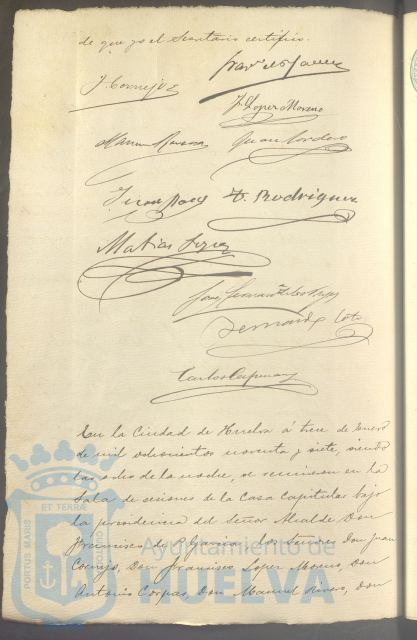 de que yo el Secretario certifico.
J. Cornejo
F. Lopez Moreno
Juan Cordero
F. Rodriguez
Matias Lopez
Fernandez de los Reyes
Bernardo
Carlos
En la Ciudad de Huelva á trece de Enero
de mil ochocientos noventa y siete, siendo
las ocho de la noche, se reunieron en la
Sala de sesiones de la Casa Capitular bajo
la presidencia del Señor Alcalde Don
Francisco de P. García, los Señores Don Juan
Cornejo, Don Francisco Lopez Moreno, Don
Antonio Corpas, Don Manuel Rivero, Don
ET TERRÆ
PORTUS MARIS
CUSTODIA
Ayuntamiento de
HUELVA